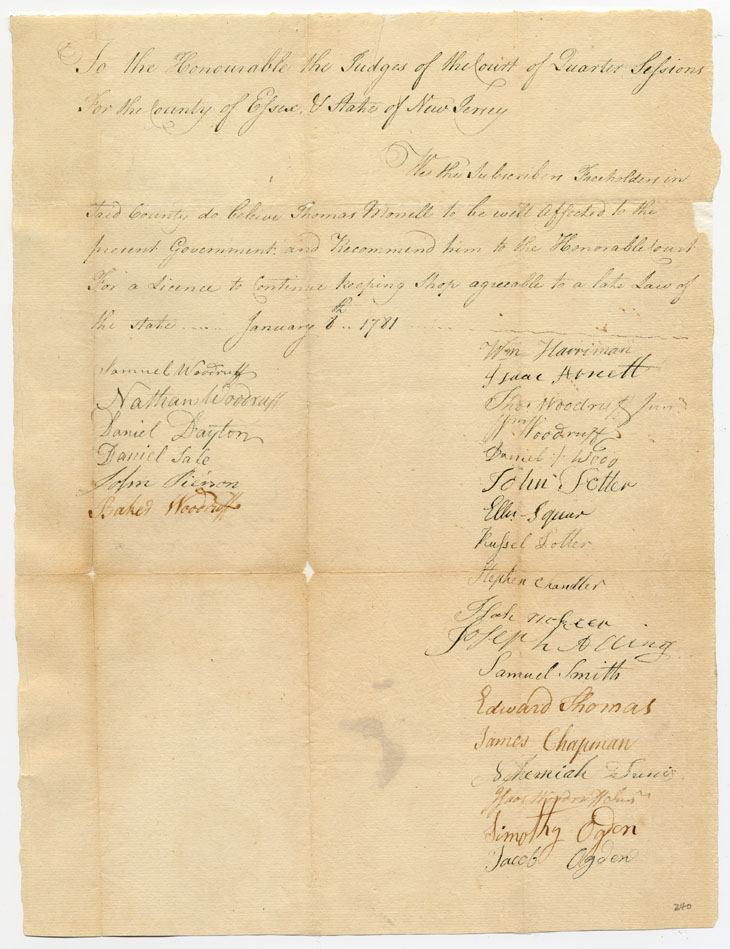 To the Honourable the Judges of the Court of Quarter Sessions
For the County of Essex, & State of New Jersey
We the Subscribers Freeholders in
Said County do beleive Thomas Morrell to be well Affected to the
present Government, and Recommend him to the Honorable Court
For a Licence to Continue keeping Shop agreeable to a late Law of
the State ...... January 8th .. 1781 ......
Samuel Woodruff
Nathan Woodruff
Daniel Dayton
Daniel Sale
John Pierson
Baker Woodruff
Wm Harriman
Isaac Arnett
Thos Woodruff Junr
Woodruff
Daniel Wood
John Potter
Squar
Russel Potter
Stephen Chandler
Joseph Alling
Samuel Smith
Edward Thomas
James Chapman
Nehemiah Tunis
Timothy Ogden
Jacob Ogden
240